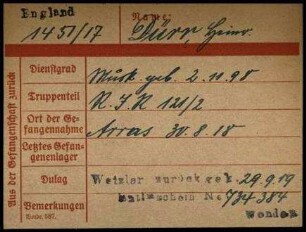 England
Name:
1451/17 Dürr, Heinr.
Aus der Gefangenschaft zurück
Dienstgrad Musk. geb. 2.11.98
Truppenteil R.I.R 121/2
Ort der Ge-
fangennahme Arras 30.8.18
Letztes Gefan-
genenlager
Dulag Wetzler zurück gek. 29.9.19
Entlaschein No 734384
Bemerkungen Wenden